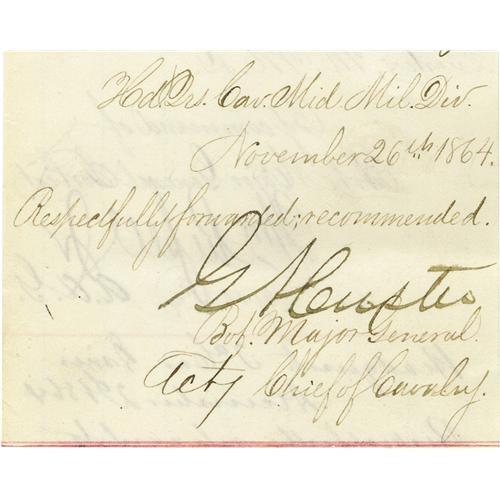 Hd. Qrs. Cav. Mid Mil. Div.
November 26th 1864.
Respectfully forwarded; recommended.
G A Custer
Bvt. Major General.
Actg Chief of Cavalry.